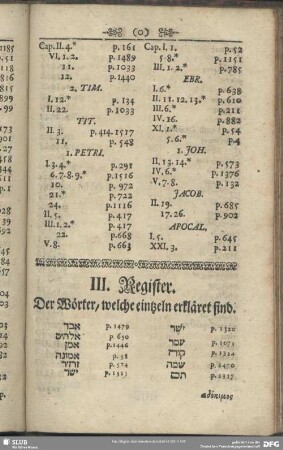 (o)
Cap. II. 4.* p. 161
VI. 1. 2. p. 1489
11. p. 1033
12. p. 1440
2. TIM.
I. 12.* p. 134
II. 22. p. 1033
TIT.
II. 3. p. 414. 1517
11. p. 548
1. PETRI.
I. 3. 4.* p. 291
6. 7. 8. 9.* p. 1516
10. p. 972
21.* p. 722
24. p. 1116
II. 5. p. 417
III. 1. 2.* p. 417
22. p. 668
V. 8. p. 663
Cap. I. 1. p. 52
5. 8.* p. 1151
III. 1. 2.* p. 785
EBR.
I. 6.* p. 638
II. 11. 12. 13.* p. 610
III. 6.* p. 211
IV. 16. p. 882
XI. 1.* p. 54
5. 6.* p. 4
1. JOH.
II. 13. 14.* p. 573
IV. 6.* p. 1376
V. 7. 8. p. 132
JACOB.
II. 19. p. 685
17. 26. p. 902
APOCAL.
I. 5. p. 645
XXI. 3. p. 211
III. Register.
Der Wörter, welche eintzeln erkläret sind.
אבר p. 1479
אלהים p. 630
אמן p. 1446
אמונה p. 58
זרזיר p. 524
ישר p. 1320
p. 1071
p. 1314
p. 1470
תם p. 1317
ἀδόκιμος
SLUB
DFG